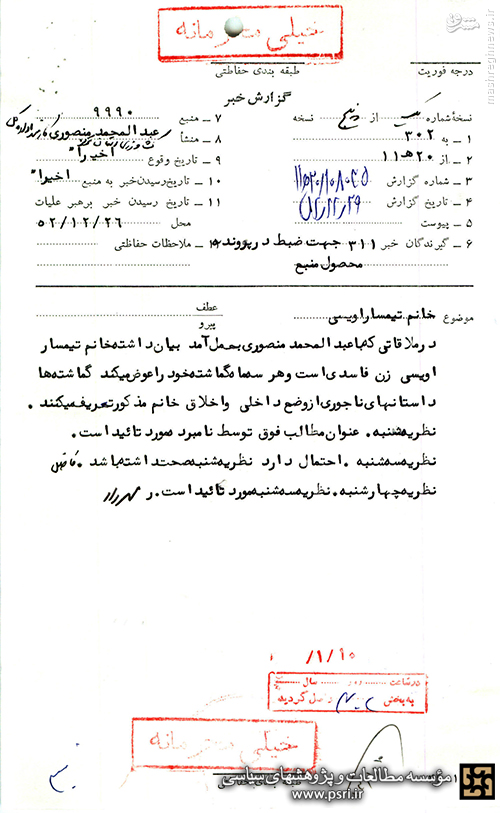 خیلی محرمانه
درجه فوریت
طبقه بندی حفاظتی
گزارش خبر
نسخه شماره یک از پنج نسخه
۱ ـ به ۳۰۲
۲ ـ از ۲۰ هـ ۱۱
۳ ـ شماره گزارش
۴ ـ تاریخ گزارش
۵ ـ پیوست
۶ ـ گیرندگان خبر ۳۱۱ جهت ضبط در پرونده
محصول منبع
۷ ـ منبع ۹۹۹۰
۸ ـ منشأ عبدالمحمد منصوری
۹ ـ تاریخ وقوع اخیرا"
۱۰ ـ تاریخ رسیدن خبر به منبع اخیرا"
۱۱ ـ تاریخ رسیدن خبر برهبر عملیات
محل ۵۲/۱۲/۲۶
۱۲ ـ ملاحظات حفاظتی
موضوع خانم تیمسار اویسی
عطف
پیرو
در ملاقاتی که با عبدالمحمد منصوری بعمل آمد بیان داشته خانم تیمسار
اویسی زن فاسدی است و هر سه ماه گماشته خود را عوض میکند گماشته ها
داستانهای ناجوری از وضع داخلی و اخلاق خانم مذکور تعریف میکنند .
نظریه شنبه . عنوان مطالب فوق توسط نامبرده مورد تائید است .
نظریه سه شنبه . احتمال دارد نظریه شنبه صحت داشته باشد .
نظریه چهارشنبه . نظریه سه شنبه مورد تائید است .
/۱/۱۰
در ساعت سال
به بخش واصل گردید
خیلی محرمانه
موسسه مطالعات و پژوهشهای سیاسی
www.psri.ir
مشرق
mashreghnews.ir